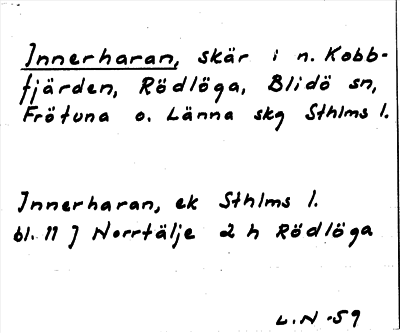 Innerharan, skär i n. Kobb-
fjärden, Rödlöga, Blidö sn,
Frötuna o. Länna skg Sthlms l.
Innerharan, ek Sthlms l.
bl. 11 J Norrtälje 2 h Rödlöga
L.N -59